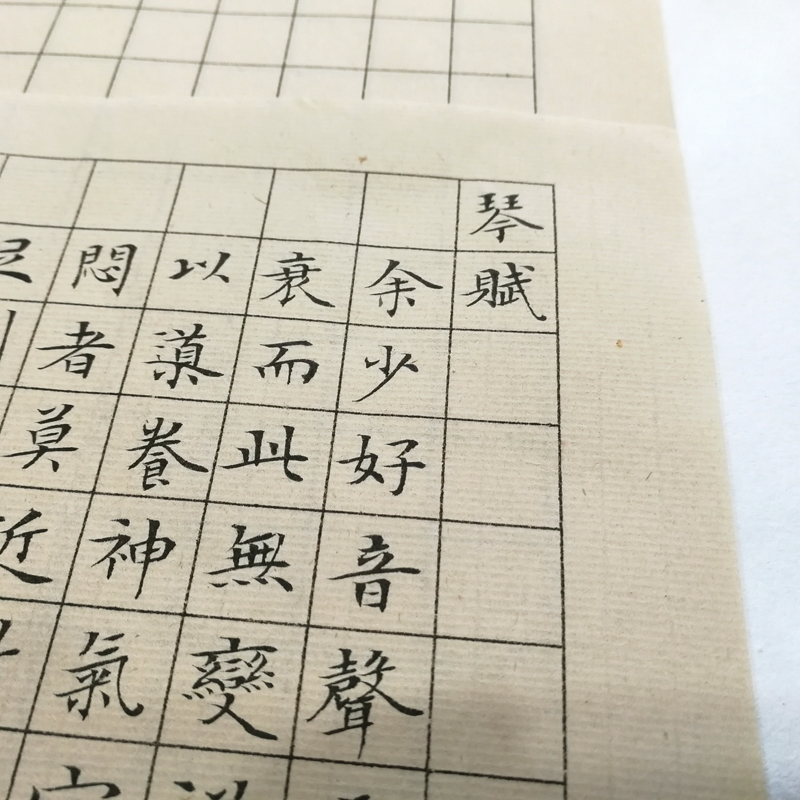 琴賦
余少好音聲
衰而此無變
以養神氣
悶者莫近